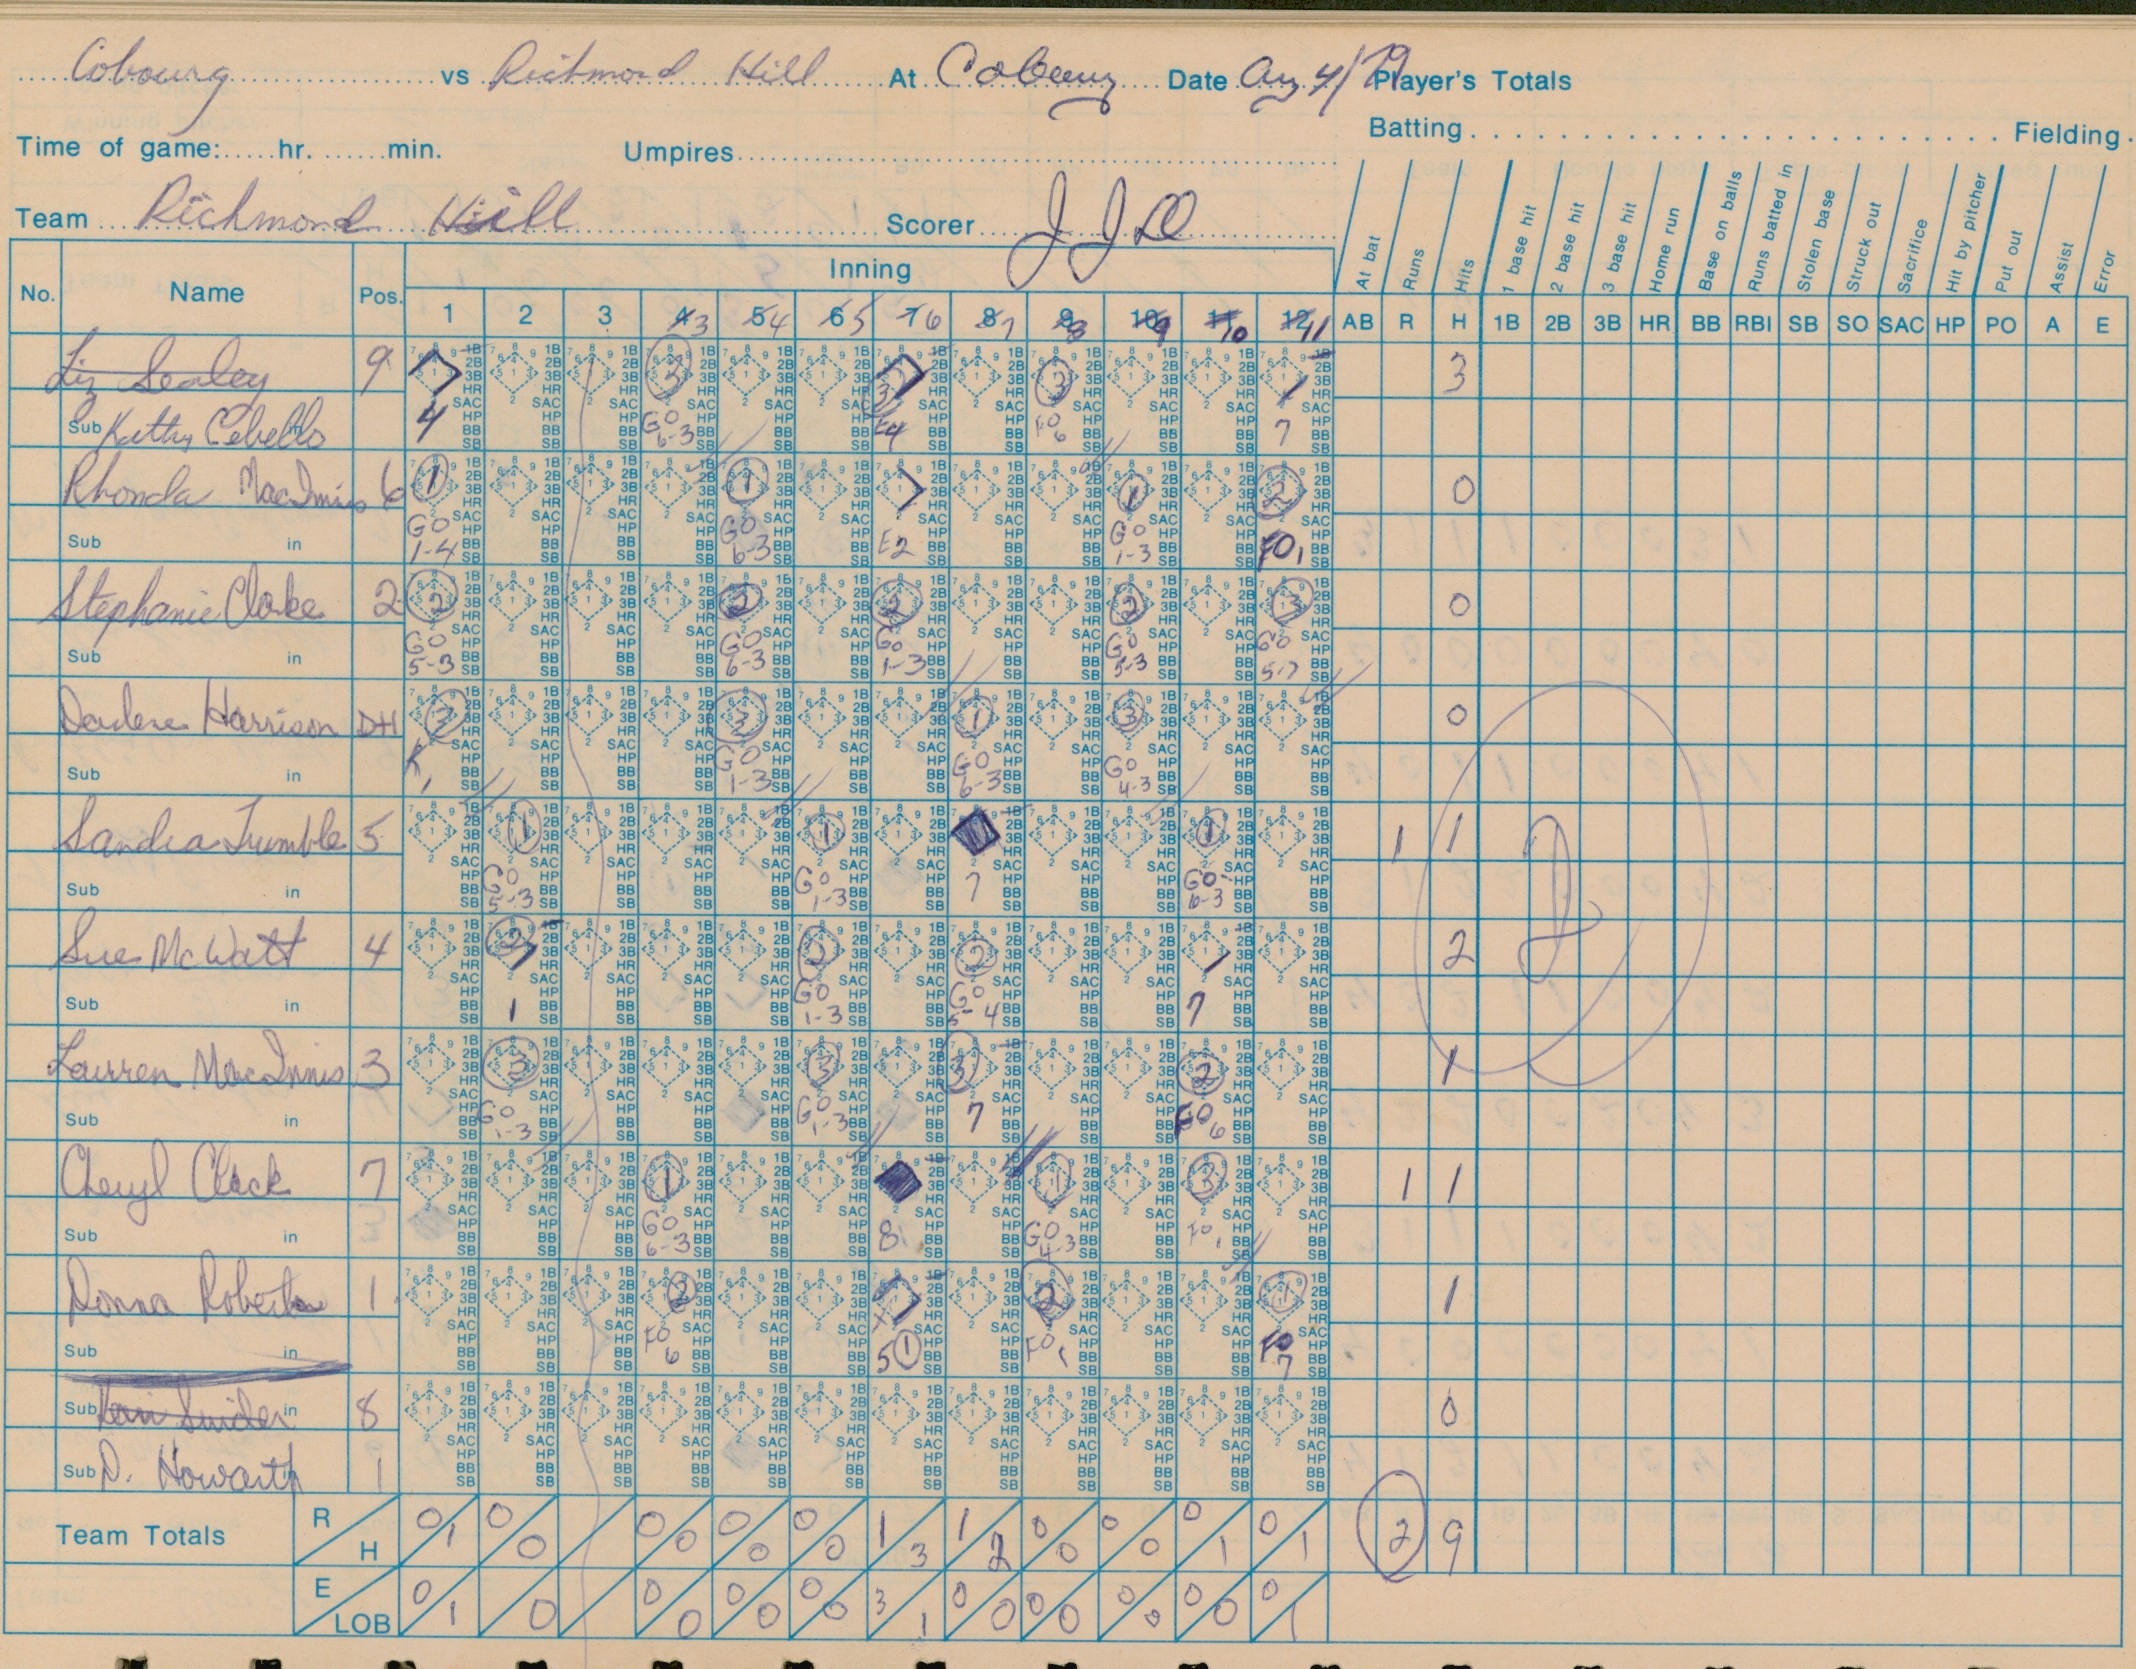 Cobourg vs Richmond Hill At Cobourg Date Aug 4/79 Player's Totals
Batting Fielding
Time of game: hr. min. Umpires
Team Richmond Hill Scorer
No. Name Pos. Inning At bat Runs Hits 1 base hit 2 base hit 3 base hit Home run Base on balls Runs batted in Stolen base Struck out Sacrifice Hit by pitcher Put out Assist Error
1 2 3 4 3 5 4 6 5 7 6 8 7 9 8 10 9 11 10 12 11 AB R H 1B 2B 3B HR BB RBI SB SO SAC HP PO A E
Liz Sealey 9 3 3 3
Sub Kathy Cebello in 4 GO 6-3 E4 FO 6 7
Rhonda MacInnis 6 1 1 1 2 0
Sub in GO 1-4 GO 6-3 E2 GO 1-3 FO 1
Stephanie Clarke 2 2 2 2 2 3 0
Sub in GO 5-3 GO 6-3 GO 1-3 GO 5-3 GO 5-?
Darlene Harrison DH 3 3 1 3 0
Sub in K GO 1-3 GO 6-3 GO 4-3
Sandra Trumble 5 1 1 1 1 1
Sub in GO 5-3 GO 1-3 7 GO 6-3
Sue McWatt 4 2 2 2 2
Sub in 1 GO 1-3 GO 5-4 7
Lauren MacInnis 3 3 3 3 2 1
Sub in GO 1-3 GO 1-3 7 FO 6
Cheryl Clack 7 1 1 3 1 1
Sub in GO 6-3 8 GO 4-3 FO 1
Donna Roberts 1 2 2 1 1
Sub in FO 6 5 1 FO 1 FO 7
Sub Snider in 8 0
Sub D. Howarth in 1
Team Totals R H 0/1 0/0 0/0 0/0 0/0 1/3 1/2 0/0 0/0 0/1 0/1 2 9
E LOB 0/1 0 0/0 0/0 0/0 3/1 0/0 0/0 0/0 0/0 0/1